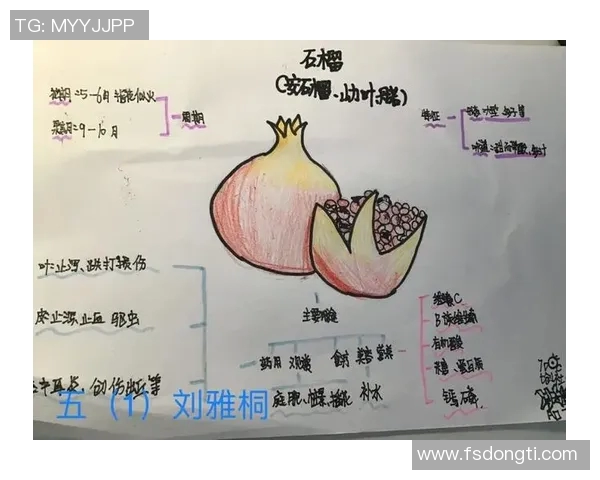 TG: MYYJJPP
石榴
(安石榴、山力叶、丹若)
花期:5-6月 榴花似火
果期:9-10月
周期
特征
叶:止泻、跌打损伤
皮:止泻止血 驱虫
创伤出血等
主要用途
药用 观赏 食材 美容 营养
庭院、盆景、插花 补水
维生素C
B族维生素
有机酸
糖类、蛋白质
钙、磷
五(1)刘雅桐
www.fsdongti.com